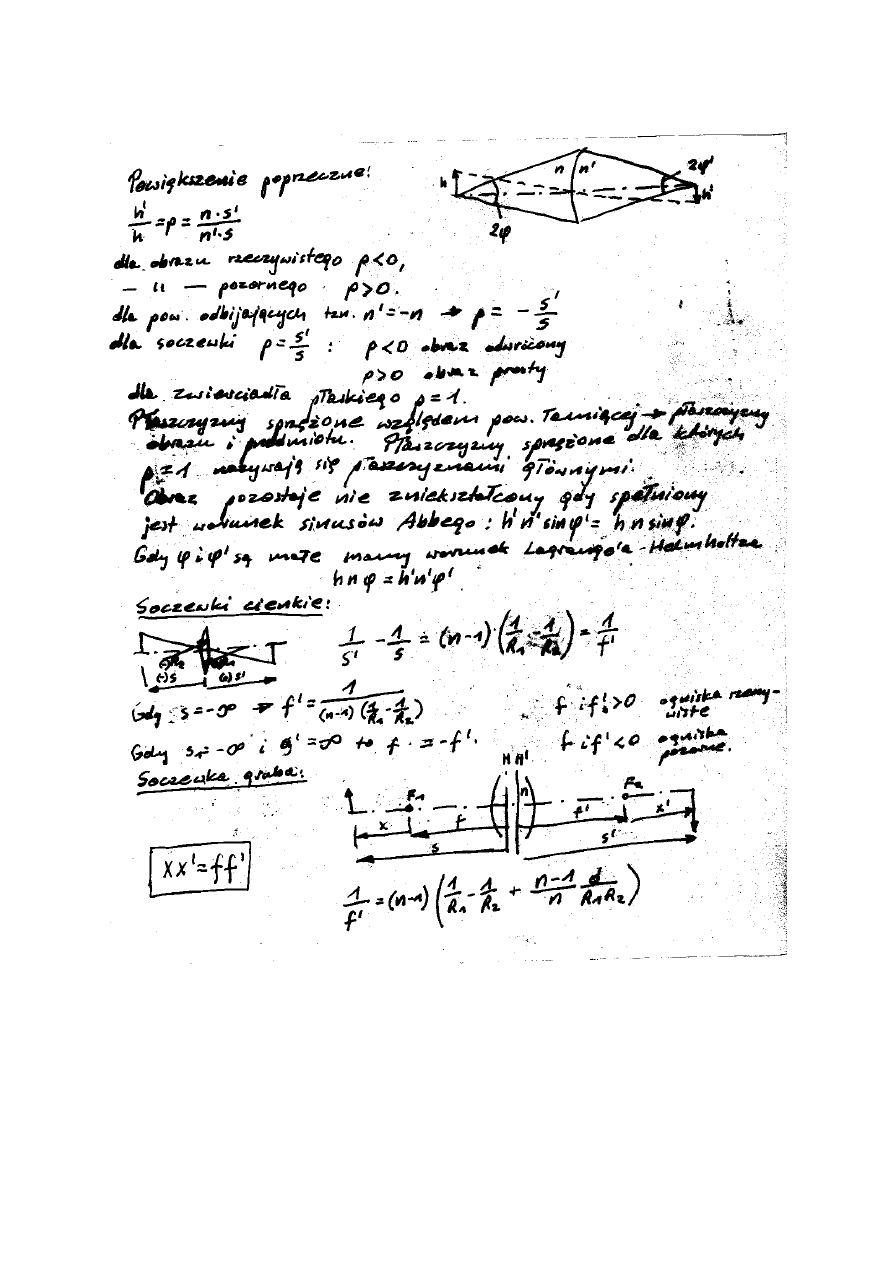 Powiększenie poprzeczne:
h n n' 2φ' h' 2φ
h'/h = p = n·s'/n'·s
dla obrazu rzeczywistego p<0,
— 11 — pozornego p>0.
dla pow. odbijających tzn. n'=-n → p = - s'/s
dla soczewki p = s'/s : p<0 obraz odwrócony
p>0 obraz prosty
dla zwierciadła płaskiego p=1.
Płaszczyzny sprzężone względem pow. łamiącej → płaszczyzny
obrazu i przedmiotu. Płaszczyzny sprzężone dla których
p=1 nazywają się płaszczyznami głównymi.
Obraz pozostaje nie zniekształcony gdy spełniony
jest warunek sinusów Abbego : h'n'sinφ' = h n sinφ.
Gdy φ i φ' są małe mamy warunek Lagrange'a-Helmholtza
h n φ = h'n'φ'
Soczewki cienkie:
1/s' - 1/s = (n-1)·(1/R1 - 1/R2) = 1/f'
(-)R2 R1
(-)s (+)s'
Gdy s=-∞ → f' = 1/((n-1)(1/R1 - 1/R2)) f i f' >0 ogniska rzeczy-
wiste
Gdy s=-∞ i s'=∞ to f = -f'. f i f' <0 ogniska
pozorne.
Soczewka gruba:
H H'
F1 n F2
x f f' x'
s s'
xx'=ff'
1/f' = (n-1)(1/R1 - 1/R2 + n-1/n d/R1R2)